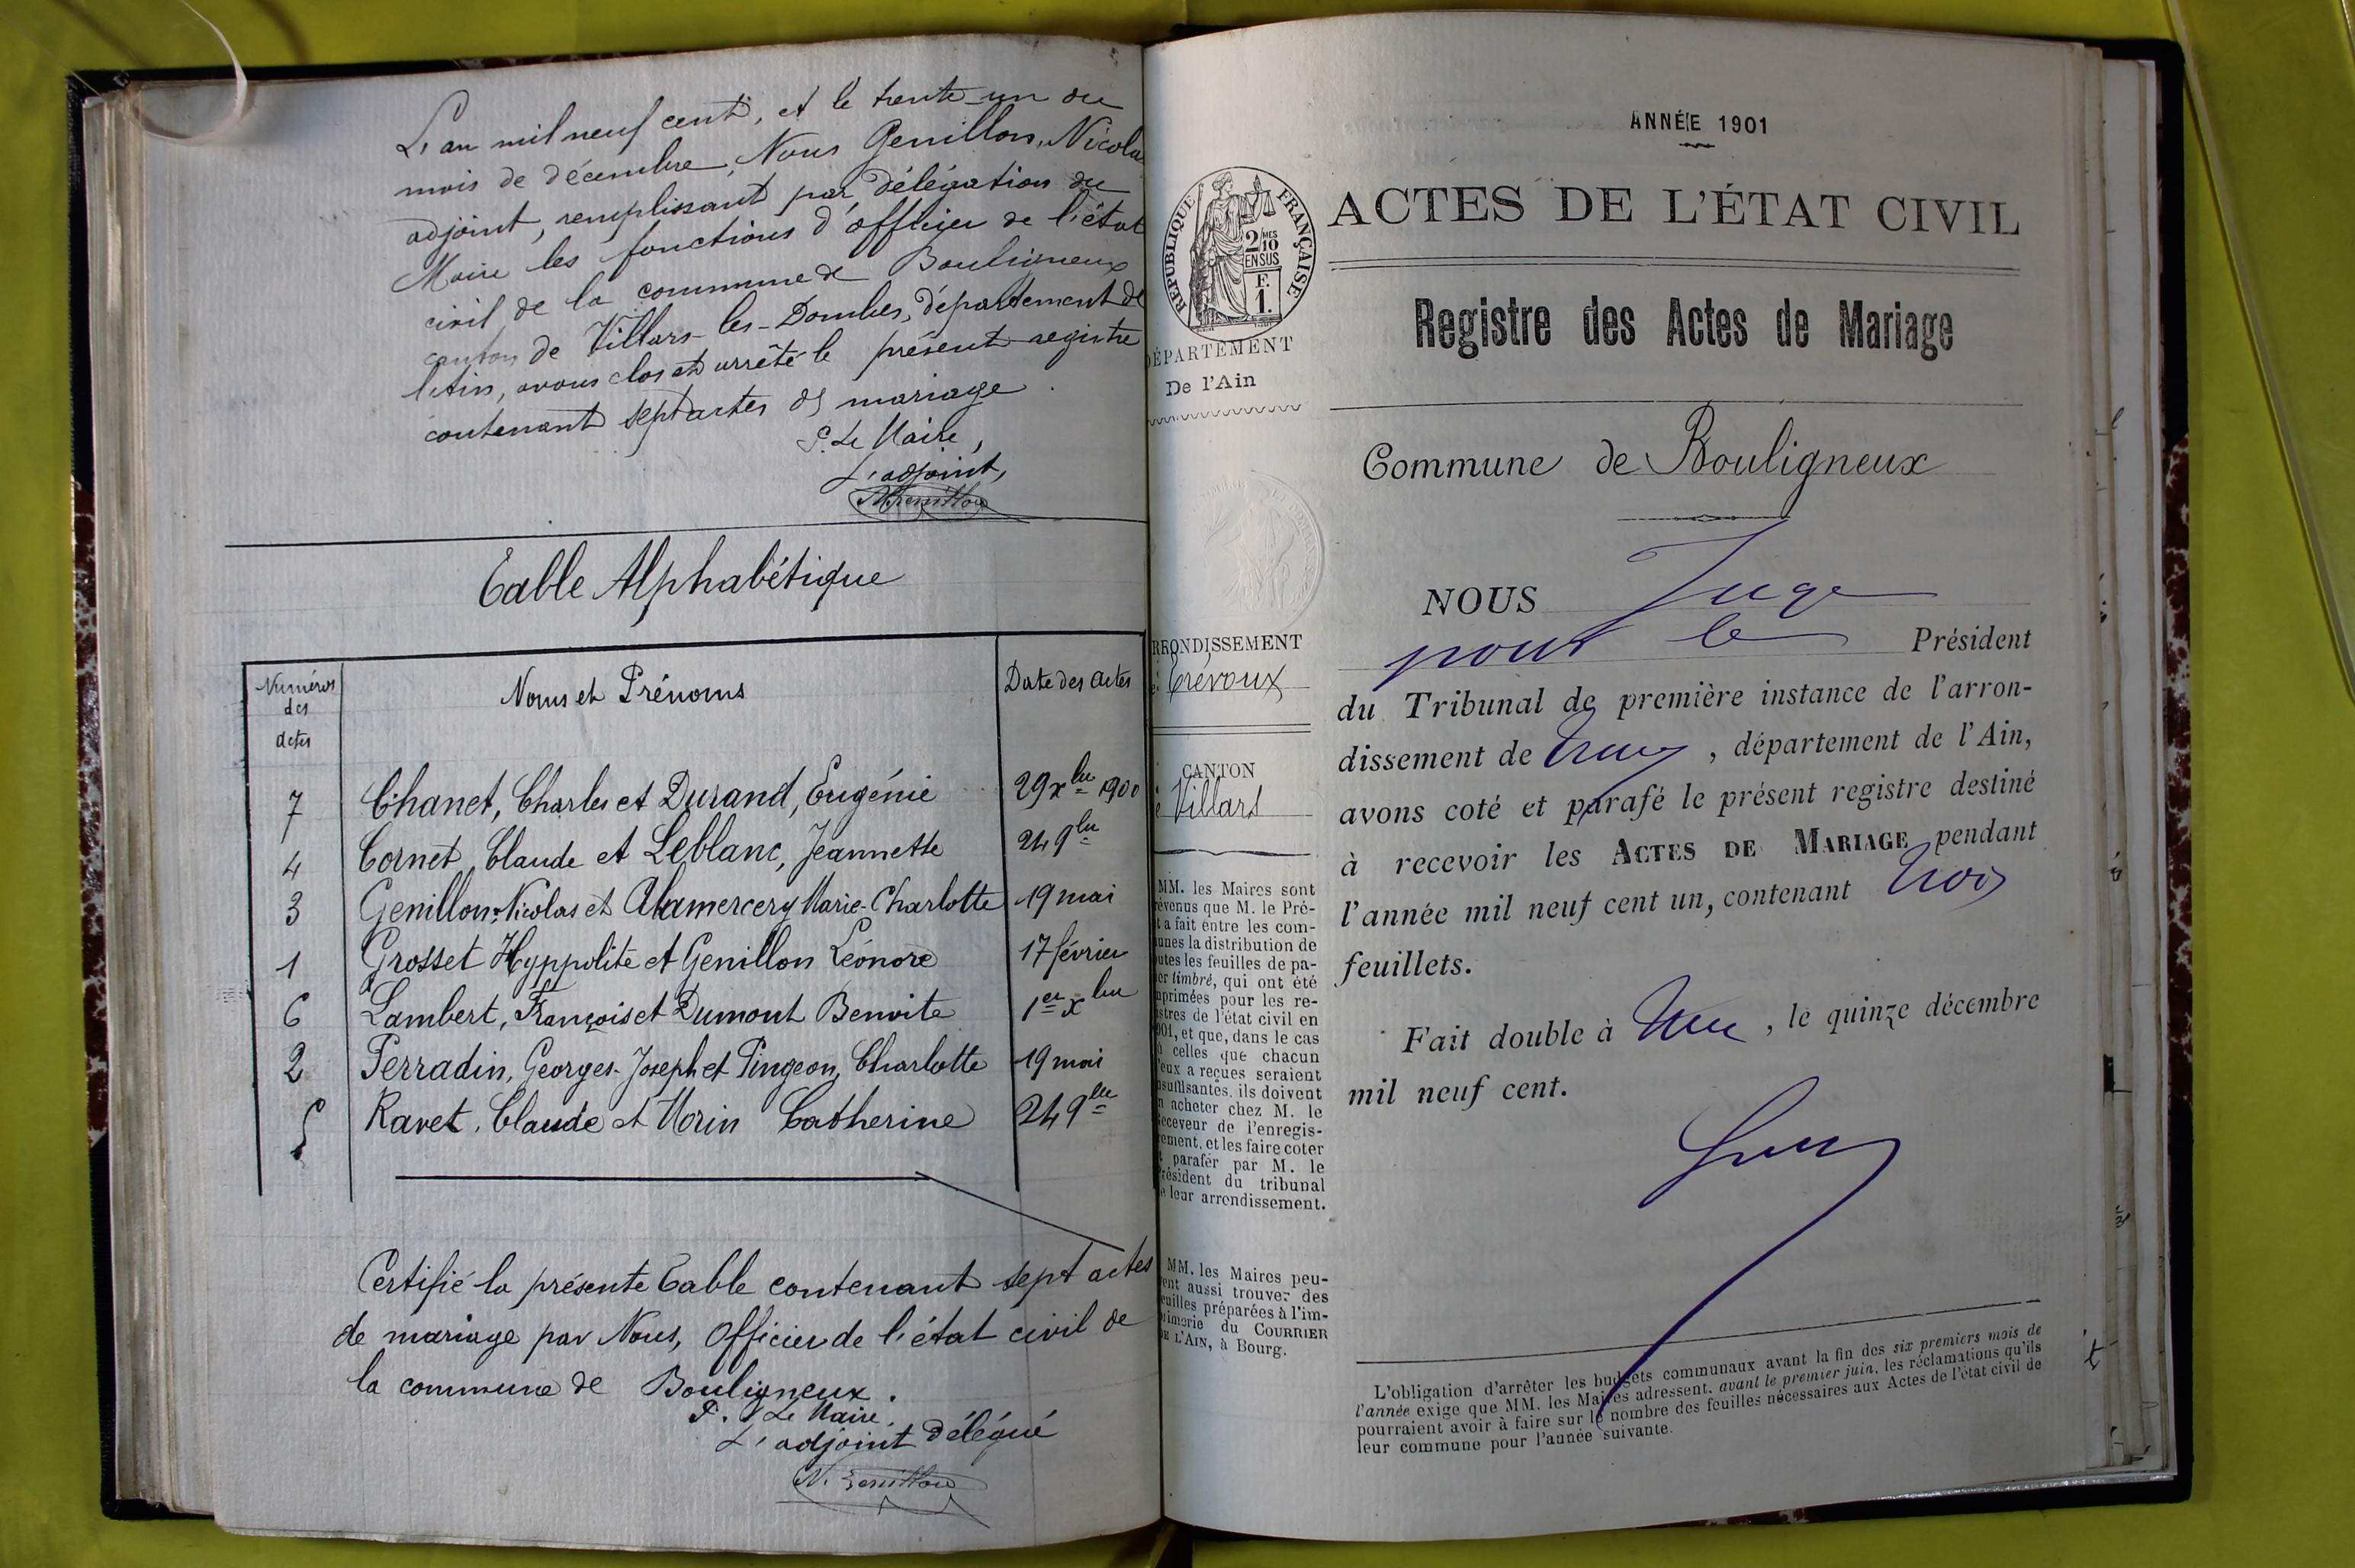 L'an mil neuf cent, et le trente-un du
mois de décembre, Nous Genillon, Nicolas
adjoint, remplissant par délégation du
Maire les fonctions d'officier de l'état
civil de la commune de Bouligneux
canton de Villars-les-Dombes, département de
l'Ain, avons clos et arrêté le présent registre
contenant sept actes de mariage.
P. Le Maire,
L'adjoint,
NGenillon
Table Alphabétique
Numéros des actes
Noms et Prénoms
Date des actes
7 Chanet, Charles et Durand, Eugénie 29 xbre 1900
4 Cornet, Claude et Leblanc, Jeannette 24 9bre
3 Genillon, Nicolas et Alamercery Marie-Charlotte 19 mai
1 Grosset Hyppolite et Genillon Léonore 17 février
6 Lambert, François et Dumont Benoite 1er xbre
2 Perradin, Georges-Joseph et Pingeon, Charlotte 19 mai
5 Ravet, Claude et Morin Catherine 24 9bre
Certifié la présente Table contenant sept actes
de mariage par Nous, Officier de l'état civil de
la commune de Bouligneux.
P. Le Maire,
L'adjoint délégué
N. Genillon
ANNÉE 1901
ACTES DE L'ÉTAT CIVIL
RÉPUBLIQUE FRANÇAISE
2/10 MES
EN SUS
F.
1.
Registre des Actes de Mariage
DÉPARTEMENT
De l'Ain
Commune de Bouligneux
NOUS Juge
pour le Président
du Tribunal de première instance de l'arron-
dissement de , département de l'Ain,
avons coté et parafé le présent registre destiné
à recevoir les ACTES DE MARIAGE pendant
l'année mil neuf cent un, contenant trois
feuillets.
Fait double à , le quinze décembre
mil neuf cent.
RRONDISSEMENT
Trévoux
CANTON
Villars
MM. les Maires sont
évenus que M. le Pré-
t a fait entre les com-
unes la distribution de
utes les feuilles de pa-
er timbré, qui ont été
primées pour les re-
stres de l'état civil en
901, et que, dans le cas
celles que chacun
'eux a reçues seraient
nsuffisantes, ils doivent
n acheter chez M. le
eceveur de l'enregis-
rement, et les faire coter
t parafer par M. le
résident du tribunal
e leur arrondissement.
MM. les Maires peu-
ent aussi trouver des
euilles préparées à l'im-
rimerie du COURRIER
DE L'AIN, à Bourg.
L'obligation d'arrêter les budgets communaux avant la fin des six premiers mois de
l'année exige que MM. les Maires adressent, avant le premier juin, les réclamations qu'ils
pourraient avoir à faire sur le nombre des feuilles nécessaires aux Actes de l'état civil de
leur commune pour l'année suivante.